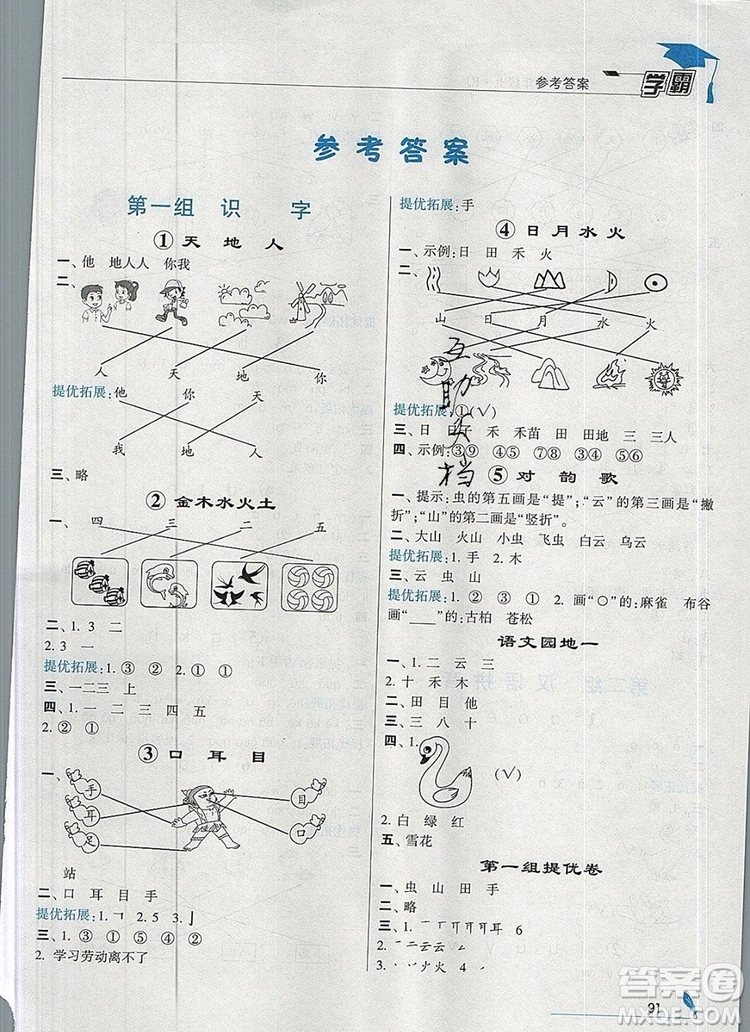 参考答案
学霸
参考答案
第一组 识 字
① 天 地 人
一、他 地人人 你我
二、
人 天 地 你
提优拓展:他 你 天
我 地 人
三、略
② 金木水火土
一、 四 三 二 五
二、1. 3 二
2. 3 一
提优拓展:1. ③ ② 2. ① ①
三、一二三 上
四、1. 一 二 三 四 五
2. ② ①
③ 口 耳 目
一、
手 目
耳
足 口
站
二、口 耳 目 手
提优拓展:1.㇕ 2. 5 3.亅
三、1. ③ ① ⑤ ④ ②
2. 学习劳动离不了
提优拓展:手
④ 日 月 水 火
一、示例:日 田 禾 火
二、
山 日 月 水 火
提优拓展:①(√)
三、日 日子 禾 禾苗 田 田地 三 三人
四、示例:③⑨ ②⑤ ④⑦ ⑤⑥
⑤ 对 韵 歌
一、提示:虫的第五画是“提”;“云”的第三画是“撇
折”;“山”的第二画是“竖折”。
二、大山 火山 小虫 飞虫 白云 乌云
提优拓展:1. 手 2. 木
三、云 虫 山
提优拓展:1. ② ③ ① 2. 画“○”的:麻雀 布谷
画“___”的:古柏 苍松
语文园地一
一、1. 二 云 三
2. 十 禾 木
二、田 目 他
三、三 八 十
四、1.
(√)
2. 白 绿 红
五、雪花
第一组提优卷
一、虫 山 田 手
二、略
6
3. 4
互助文档
91
答案圈
MXQE.COM